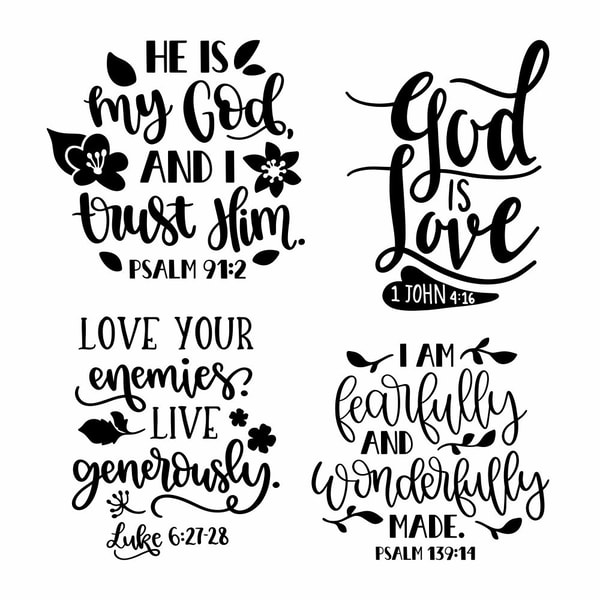 HE IS
my God,
AND I
trust Him.
PSALM 91:2
God
IS
Love
1 JOHN 4:16
LOVE YOUR
enemies?
LIVE
generously.
Luke 6:27-28
I AM
fearfully
AND
wonderfully
MADE.
PSALM 139:14